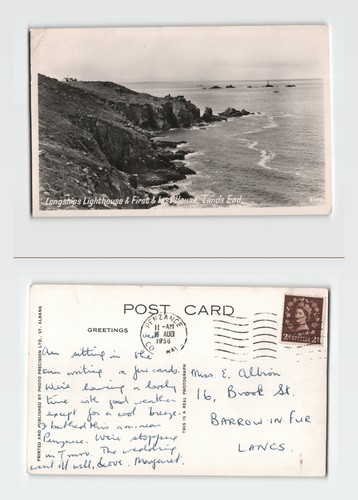 Longships Lighthouse & First & Last House, Lands End
POST CARD
GREETINGS
PRINTED AND PUBLISHED BY PHOTO PRECISION LTD., ST. ALBANS
THIS IS A REAL PHOTOGRAPH
PENZANCE
11-AM
AUG
1956
2d 2d
Am sitting in the
sun writing a few cards.
We're having a lovely
time with good weather
except for a cool breeze.
I bathed this a.m. near
Penzance. We're stopping
in Truro. The wedding
went off well. Love. Margaret.
Miss. E. Albion
16, Brook St.
BARROW IN FUR
LANCS.